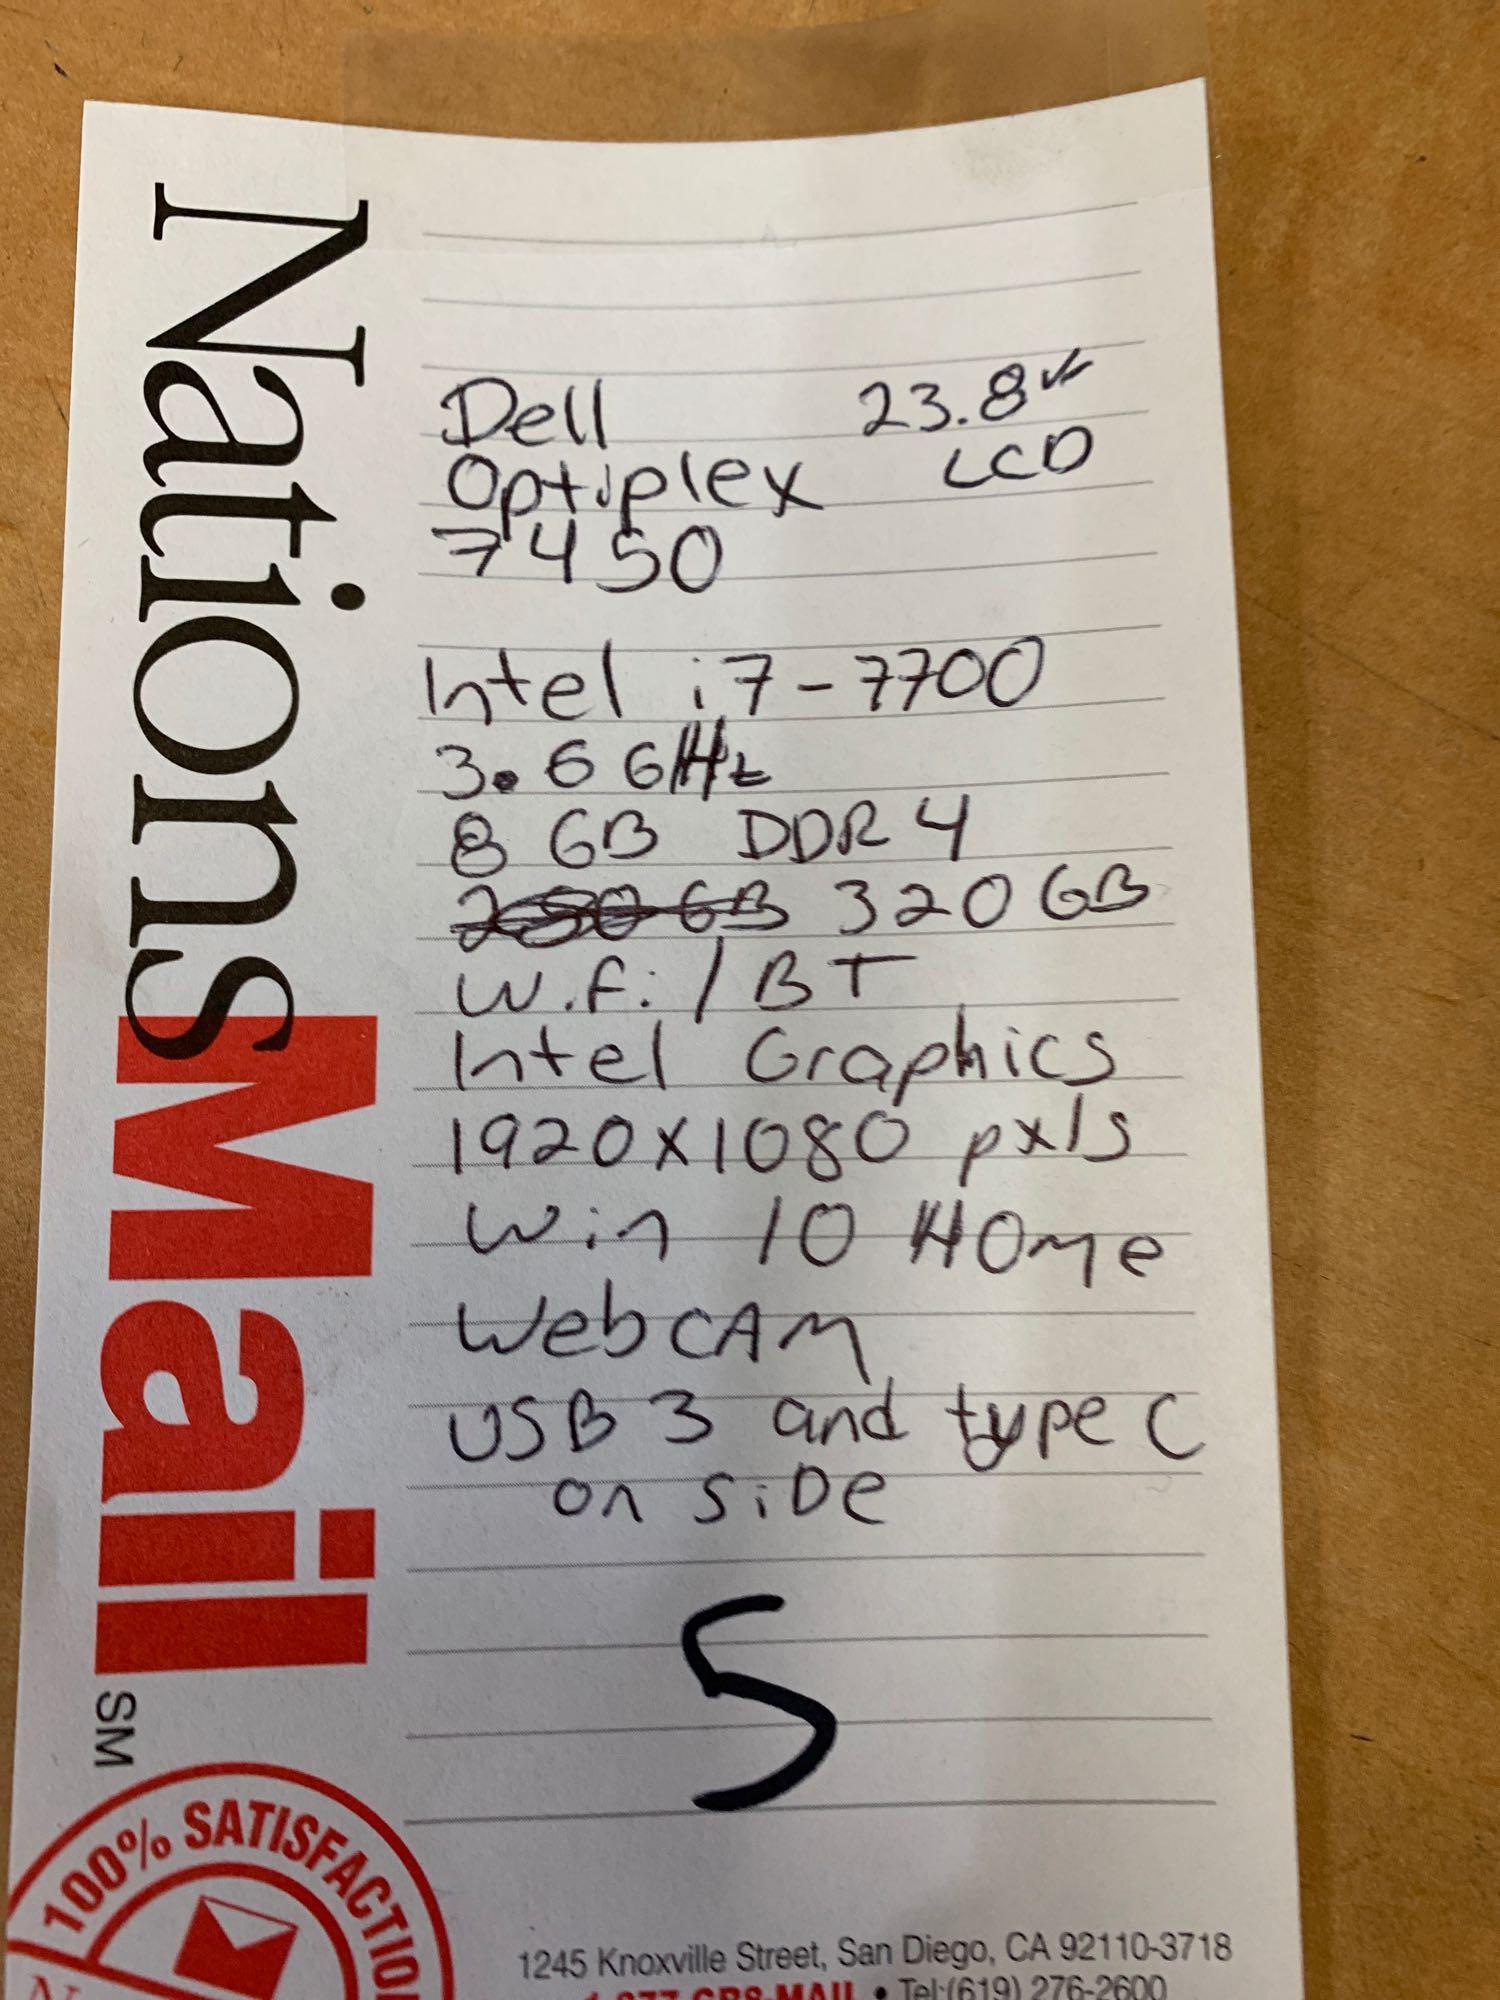 Nations Mail SM
Dell 23.8"
Optiplex LCD
7450
Intel i7-7700
3.6 GHz
8 GB DDR4
250 GB 320 GB
W.f. / BT
Intel Graphics
1920X1080 pxls
Win 10 HOme
WebCAM
USB 3 and type C
on SiDe
5
100% SATISFACTION
1245 Knoxville Street, San Diego, CA 92110-3718
1-877-GRS-MAIL • Tel:(619) 276-2600